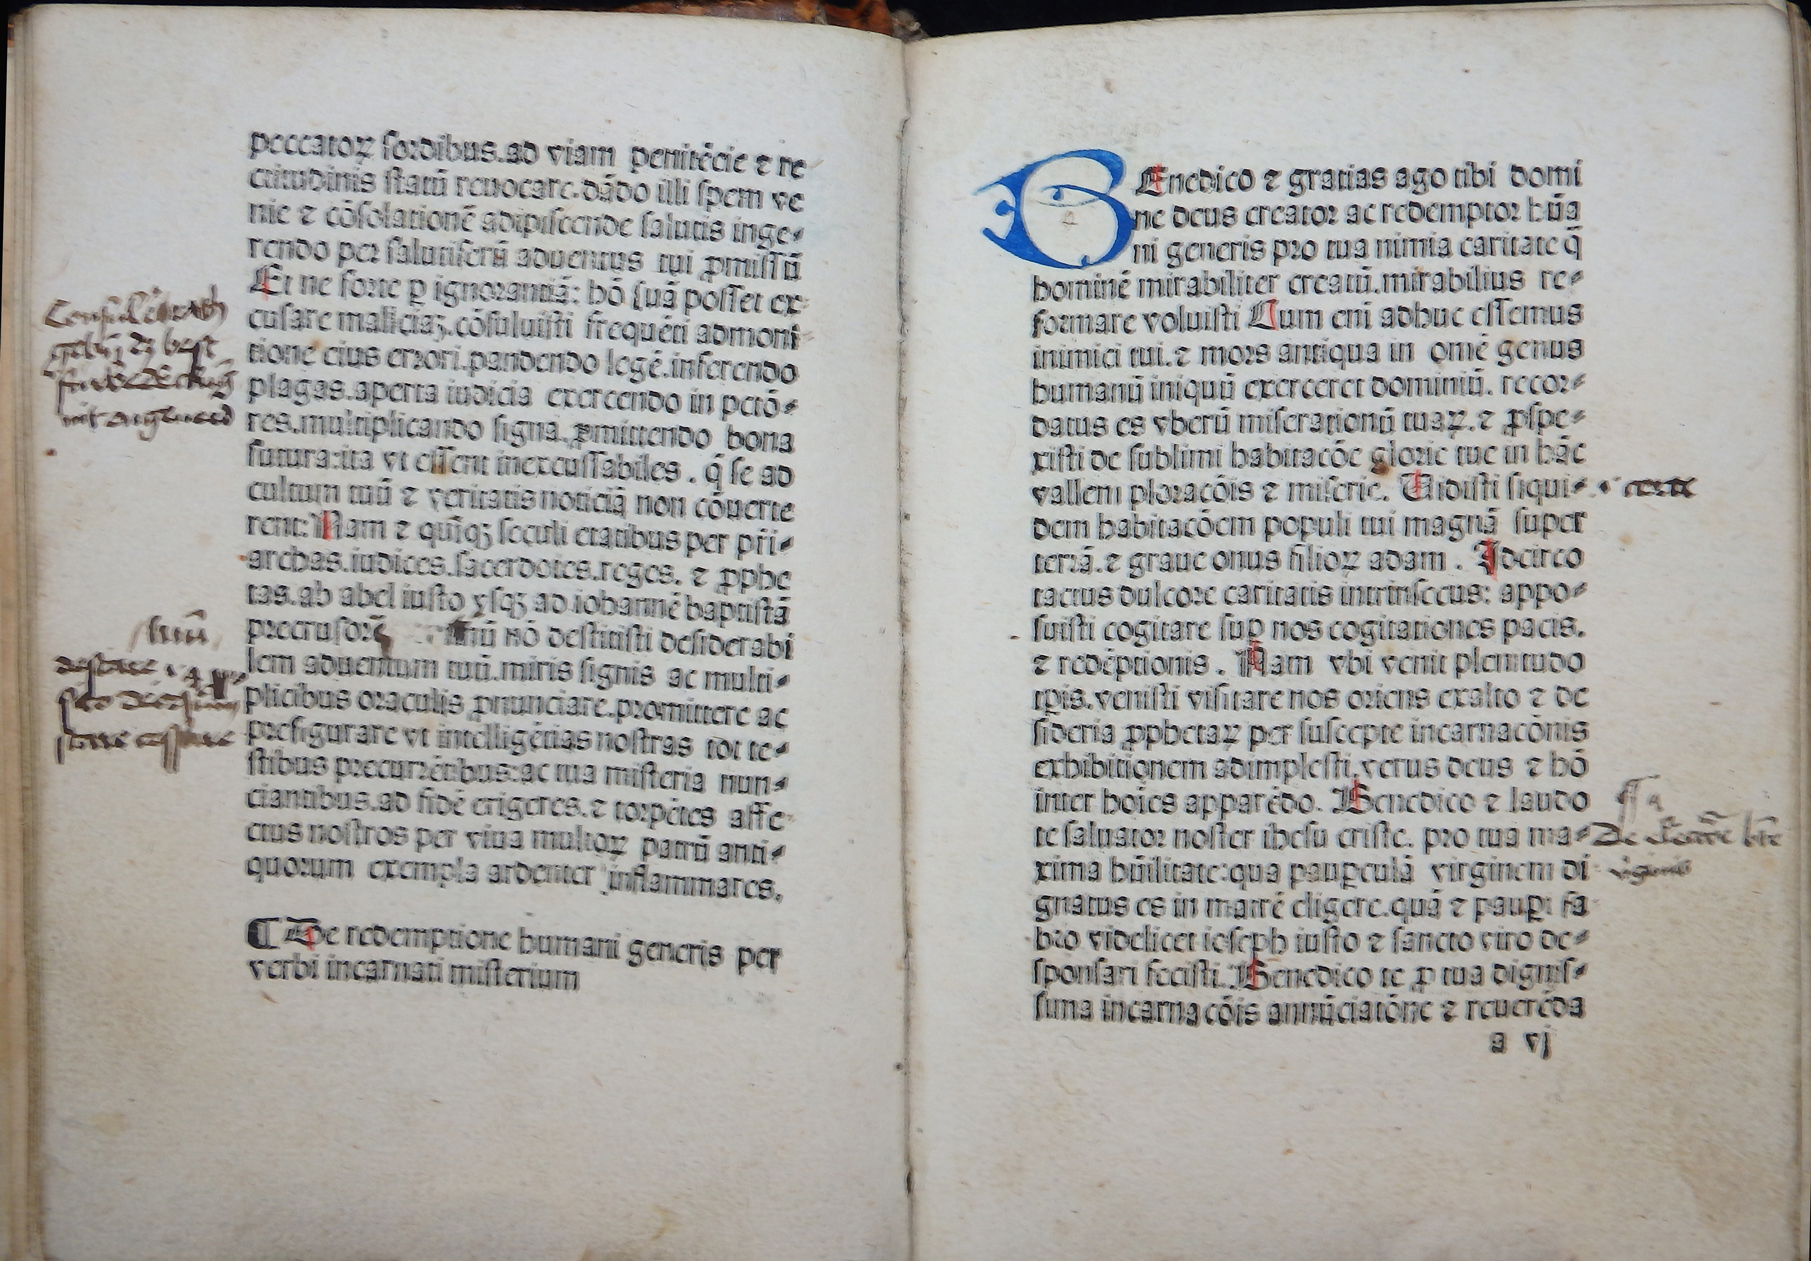 peccatoꝝ sordibus.ad viam penitẽcie ⁊ re
ctitudinis statũ reuocare.dãdo illi spem ve
nie ⁊ cõsolationẽ adipiscende salutis inge⸗
rendo per salutiferũ aduentus tui ꝓmissũ
Et ne forte ꝑ ignorantiã: hõ suã posset ex⸗
cusare maliciaꝫ.cõsuluisti frequẽti admoni⸗
tione eius errori.pandendo legẽ.inferendo
plagas.aperta iudicia exercendo in pctõ⸗
res.multiplicando signa.ꝓmittendo bona
futura:ita vt essent inexcussabiles. q̃ se ad
cultum tuũ ⁊ veritatis noticiã non cõuerte
rent: Nam ⁊ quĩqꝫ seculi etatibus per pr̃i⸗
archas.iudices.sacerdotes.reges. ⁊ ꝓphe
tas.ab abel iusto vsqꝫ ad iohannẽ baptistã
precrusorẽ tuũ nõ destitisti desiderabi
lem aduentum tuũ.miris signis ac multi⸗
plicibus oraculis ꝓnunciare.promittere ac
prefigurare vt intelligẽtias nostras tot te⸗
stibus precurrẽtibus:ac tua misteria nun⸗
ciantibus.ad fidẽ erigeres.⁊ torpẽtes affe⸗
ctus nostros per viua multoꝝ patrũ anti⸗
quorum exempla ardenter inflammares.
¶ De redemptione humani generis per
verbi incarnati misterium
tuũ
BEnedico ⁊ gratias ago tibi domi
ne deus creator ac redemptor hũa
ni generis pro tua nimia caritate q̃
hominẽ mirabiliter creatũ.mirabilius re⸗
formare voluisti Cum eni adhuc essemus
inimici tui.⁊ mors antiqua in omẽ genus
humanũ iniquũ exerceret dominiũ. recor⸗
datus es vberũ miserationũ tuaꝝ.⁊ ꝓspe⸗
xisti de sublimi habitacõe glorie tue in hãc
vallem ploracõis ⁊ miserie. Uidisti siqui⸗
dem habitacõem populi tui magnã super
terrã.⁊ graue onus filioꝝ adam. Idcirco
tactus dulcore caritatis intrinsecus: appo⸗
suisti cogitare suꝑ nos cogitationes pacis.
⁊ redẽptionis. Nam vbi venit plenitudo
tꝑis.venisti visitare nos oriens exalto ⁊ de
sideria ꝓphetaꝝ per suscepte incarnacõnis
exhibitionem adimplesti.verus deus ⁊ hõ
inter hoĩes apparẽdo. Benedico ⁊ laudo
te saluator noster ihesu criste. pro tua ma⸗
xima hũilitate:qua pauꝑculã virginem di
gnatus es in matrẽ eligere.quã ⁊ pauꝑi fa
bro videlicet ioseph iusto ⁊ sancto viro de⸗
sponsari fecisti. Benedico te ꝓ tua dignis⸗
sima incarnacõis annũciatõne ⁊ reuerẽda
a vj
certe
virginis